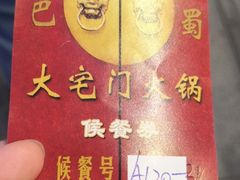 巴 蜀
大宅门火锅
候餐券
候餐号